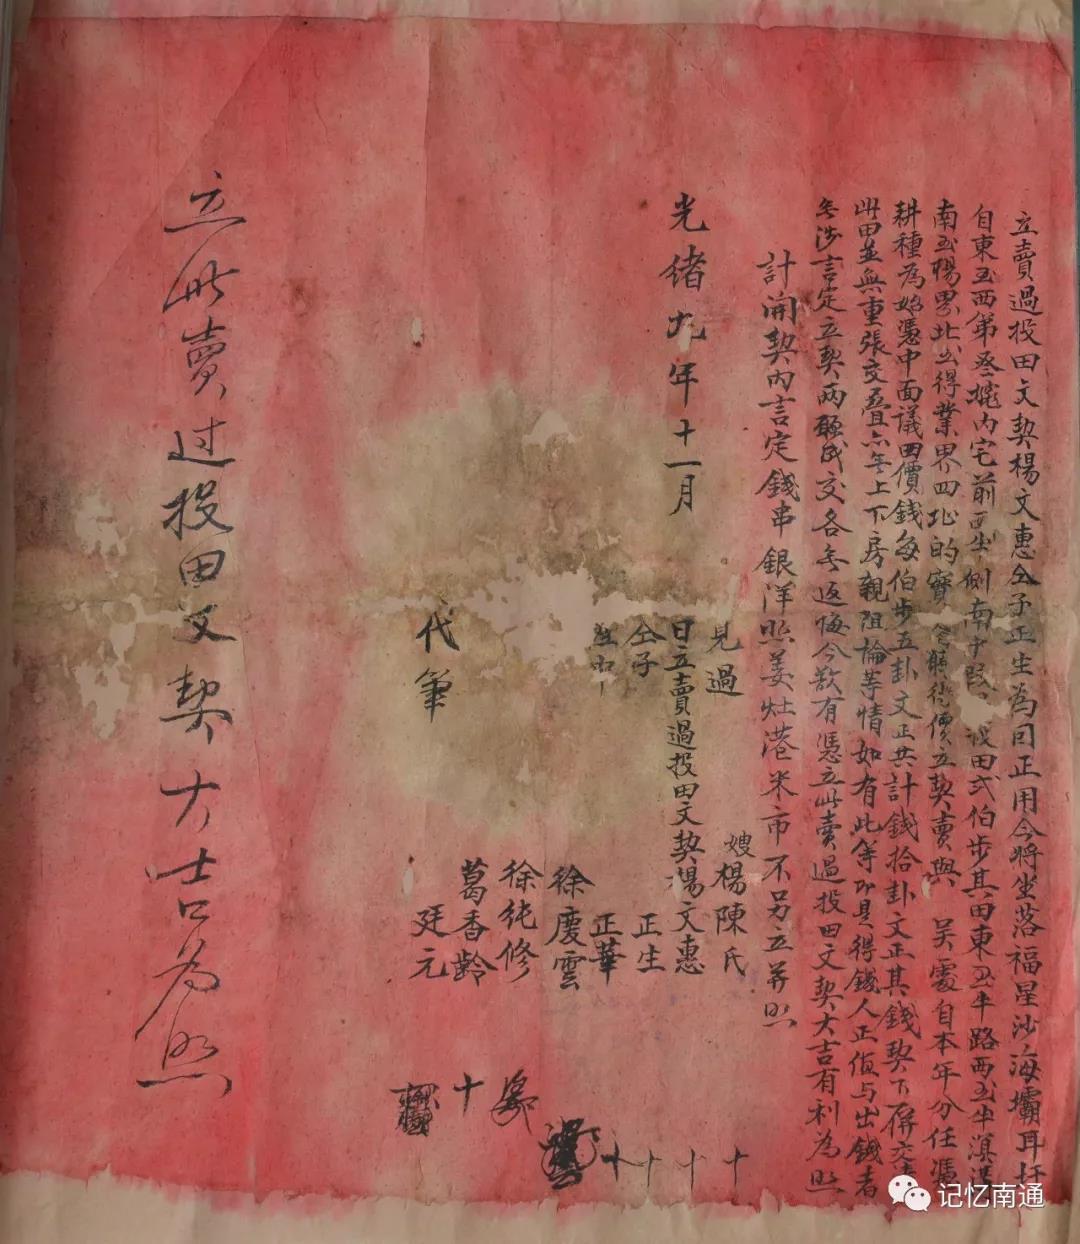 立賣過投田文契楊文惠仝子正生為因正用今將坐落福星沙海壩耳圩
自東至西第叁埦內宅前西坐側南中段投田式伯步其田東至半路西至半濵
南至楊界北至得業界四址的寶立契賣與吴處自本年分任憑
耕種為始憑中面議田價錢每伯步五卦文正共計錢拾卦文正其錢契下併交清
此田並無重張交叠亦無上下房親阻論等情如有此等即是得錢人正值与出錢者
無涉言定立契兩願成交各無返悔今欲有憑立此賣過投田文契大吉有利為照
計開契內言定錢串銀洋照姜灶港米市不另立筭照
光緒九年十一月
見過嫂楊陳氏十
日立賣過投田文契楊文惠十
仝子正生十
正華十
徐慶雲
徐純修
葛香齡十
代筆廷元
立此賣过投田文契大吉為照
记忆南通